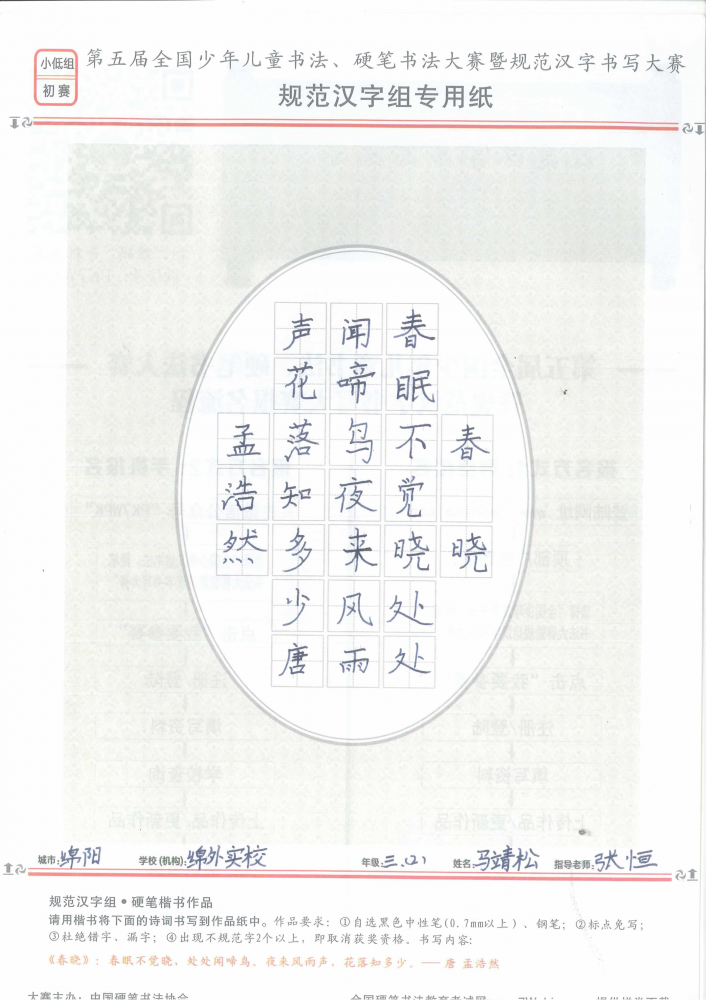 小低组
初赛
第五届全国少年儿童书法、硬笔书法大赛暨规范汉字书写大赛
规范汉字组专用纸
春晓
春眠不觉晓处处
闻啼鸟夜来风雨
声花落知多少唐
孟浩然
城市:绵阳 学校(机构):绵外实校 年级:三.(2) 姓名:马靖松 指导老师:张恒
规范汉字组●硬笔楷书作品
请用楷书将下面的诗词书写到作品纸中。作品要求：①自选黑色中性笔(0.7mm以上)、钢笔；②标点免写；
③杜绝错字、漏字；④出现不规范字2个以上，即取消获奖资格。书写内容:
《春晓》：春眠不觉晓，处处闻啼鸟。夜来风雨声，花落知多少。——唐 孟浩然
大赛主办：中国硬笔书法协会 全国硬笔书法教育考试网